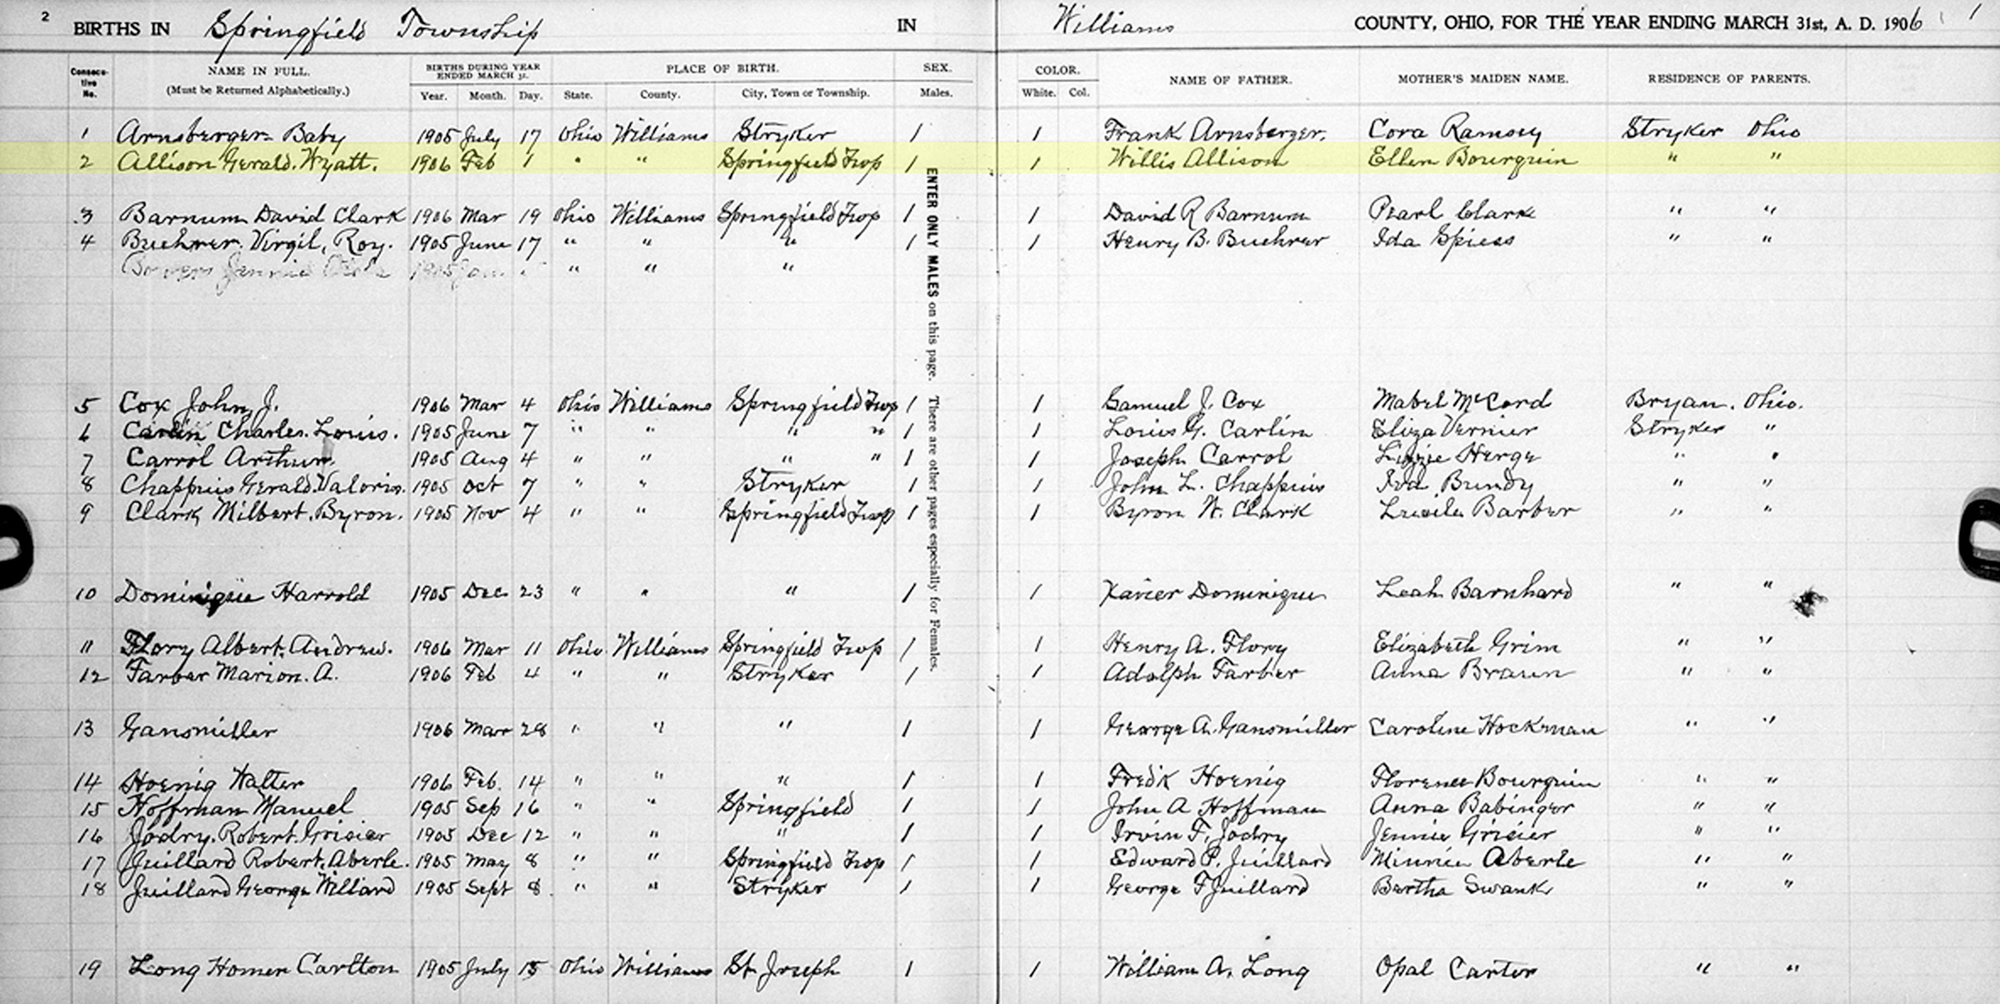 2 BIRTHS IN Springfield Township IN Williams COUNTY, OHIO, FOR THE YEAR ENDING MARCH 31st, A. D. 1906 1
Consecutive No. NAME IN FULL. (Must be Returned Alphabetically.) BIRTHS DURING YEAR ENDED MARCH 31. Year. Month. Day. PLACE OF BIRTH. State. County. City, Town or Township. SEX. Males. COLOR. White. Col. NAME OF FATHER. MOTHER'S MAIDEN NAME. RESIDENCE OF PARENTS.
1 Arnsberger Baby 1905 July 17 Ohio Williams Stryker 1 1 Frank Arnsberger. Cora Ramsey Stryker Ohio
2 Allison Gerald. Wyatt. 1906 Feb 1 " " Springfield Twp 1 1 Willis Allison Ellen Bourquin " "
3 Barnum David Clark 1906 Mar 19 Ohio Williams Springfield Twp 1 1 David R Barnum Pearl Clark " "
4 Buehrer. Virgil, Roy. 1905 June 17 " " " 1 1 Henry B. Buehrer Ida Spiess " "
Jennie 1905 " " "
5 Cox John J. 1906 Mar 4 Ohio Williams Springfield Twp 1 1 Samuel J. Cox Mabel McCord Bryan. Ohio.
6 Carlin Charles. Louis. 1905 June 7 " " " " 1 1 Louis G. Carlin Eliza Vernier Stryker "
7 Carrol Arthur 1905 Aug 4 " " " " 1 1 Joseph Carrol Lizzie Herge " "
8 Chappuis Gerald. Valoris. 1905 Oct 7 " " Stryker 1 1 John L. Chappuis Iva Bundy " "
9 Clark Milbert. Byron. 1905 Nov 4 " " Springfield Twp 1 1 Byron W. Clark Lucile Barber " "
10 Dominique Harrold 1905 Dec 23 " " " 1 1 Xavier Dominique Leah Barnhard " "
11 Flory Albert. Andrew. 1906 Mar 11 Ohio Williams Springfield Twp 1 1 Henry A. Flory Elizabeth Grim " "
12 Farber Marion. A. 1906 Feb 4 " " Stryker 1 1 Adolph Farber Anna Braun " "
13 Gansmiller 1906 Mar 28 " " " 1 1 George A. Gansmiller Caroline Hockman " "
14 Hoenig Walter 1906 Feb. 14 " " " 1 1 Fredk Hoenig Florence Bourquin " "
15 Hoffman Manuel 1905 Sep 16 " " Springfield 1 1 John A Hoffman Anna Babinger " "
16 Jodry. Robert. Grisier 1905 Dec 12 " " " 1 1 Irvin F. Jodry Jennie Grisier " "
17 Juillard Robert. Aberle. 1905 May 8 " " Springfield Twp 1 1 Edward P. Juillard Minnie Aberle " "
18 Juillard George Willard 1905 Sept 8 " " Stryker 1 1 George F Juillard Bertha Swank " "
19 Long Homer Carlton 1905 July 15 Ohio Williams St Joseph 1 1 William A. Long Opal Carter " "
ENTER ONLY MALES on this page. There are other pages especially for Females.